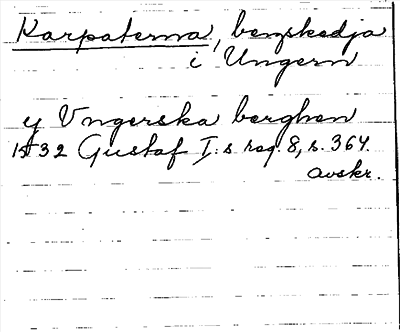 Karpaterna, bergskedja
i Ungern
y Vngerska berghen
1532 Gustaf I:s reg. 8, s. 364.
avskr.